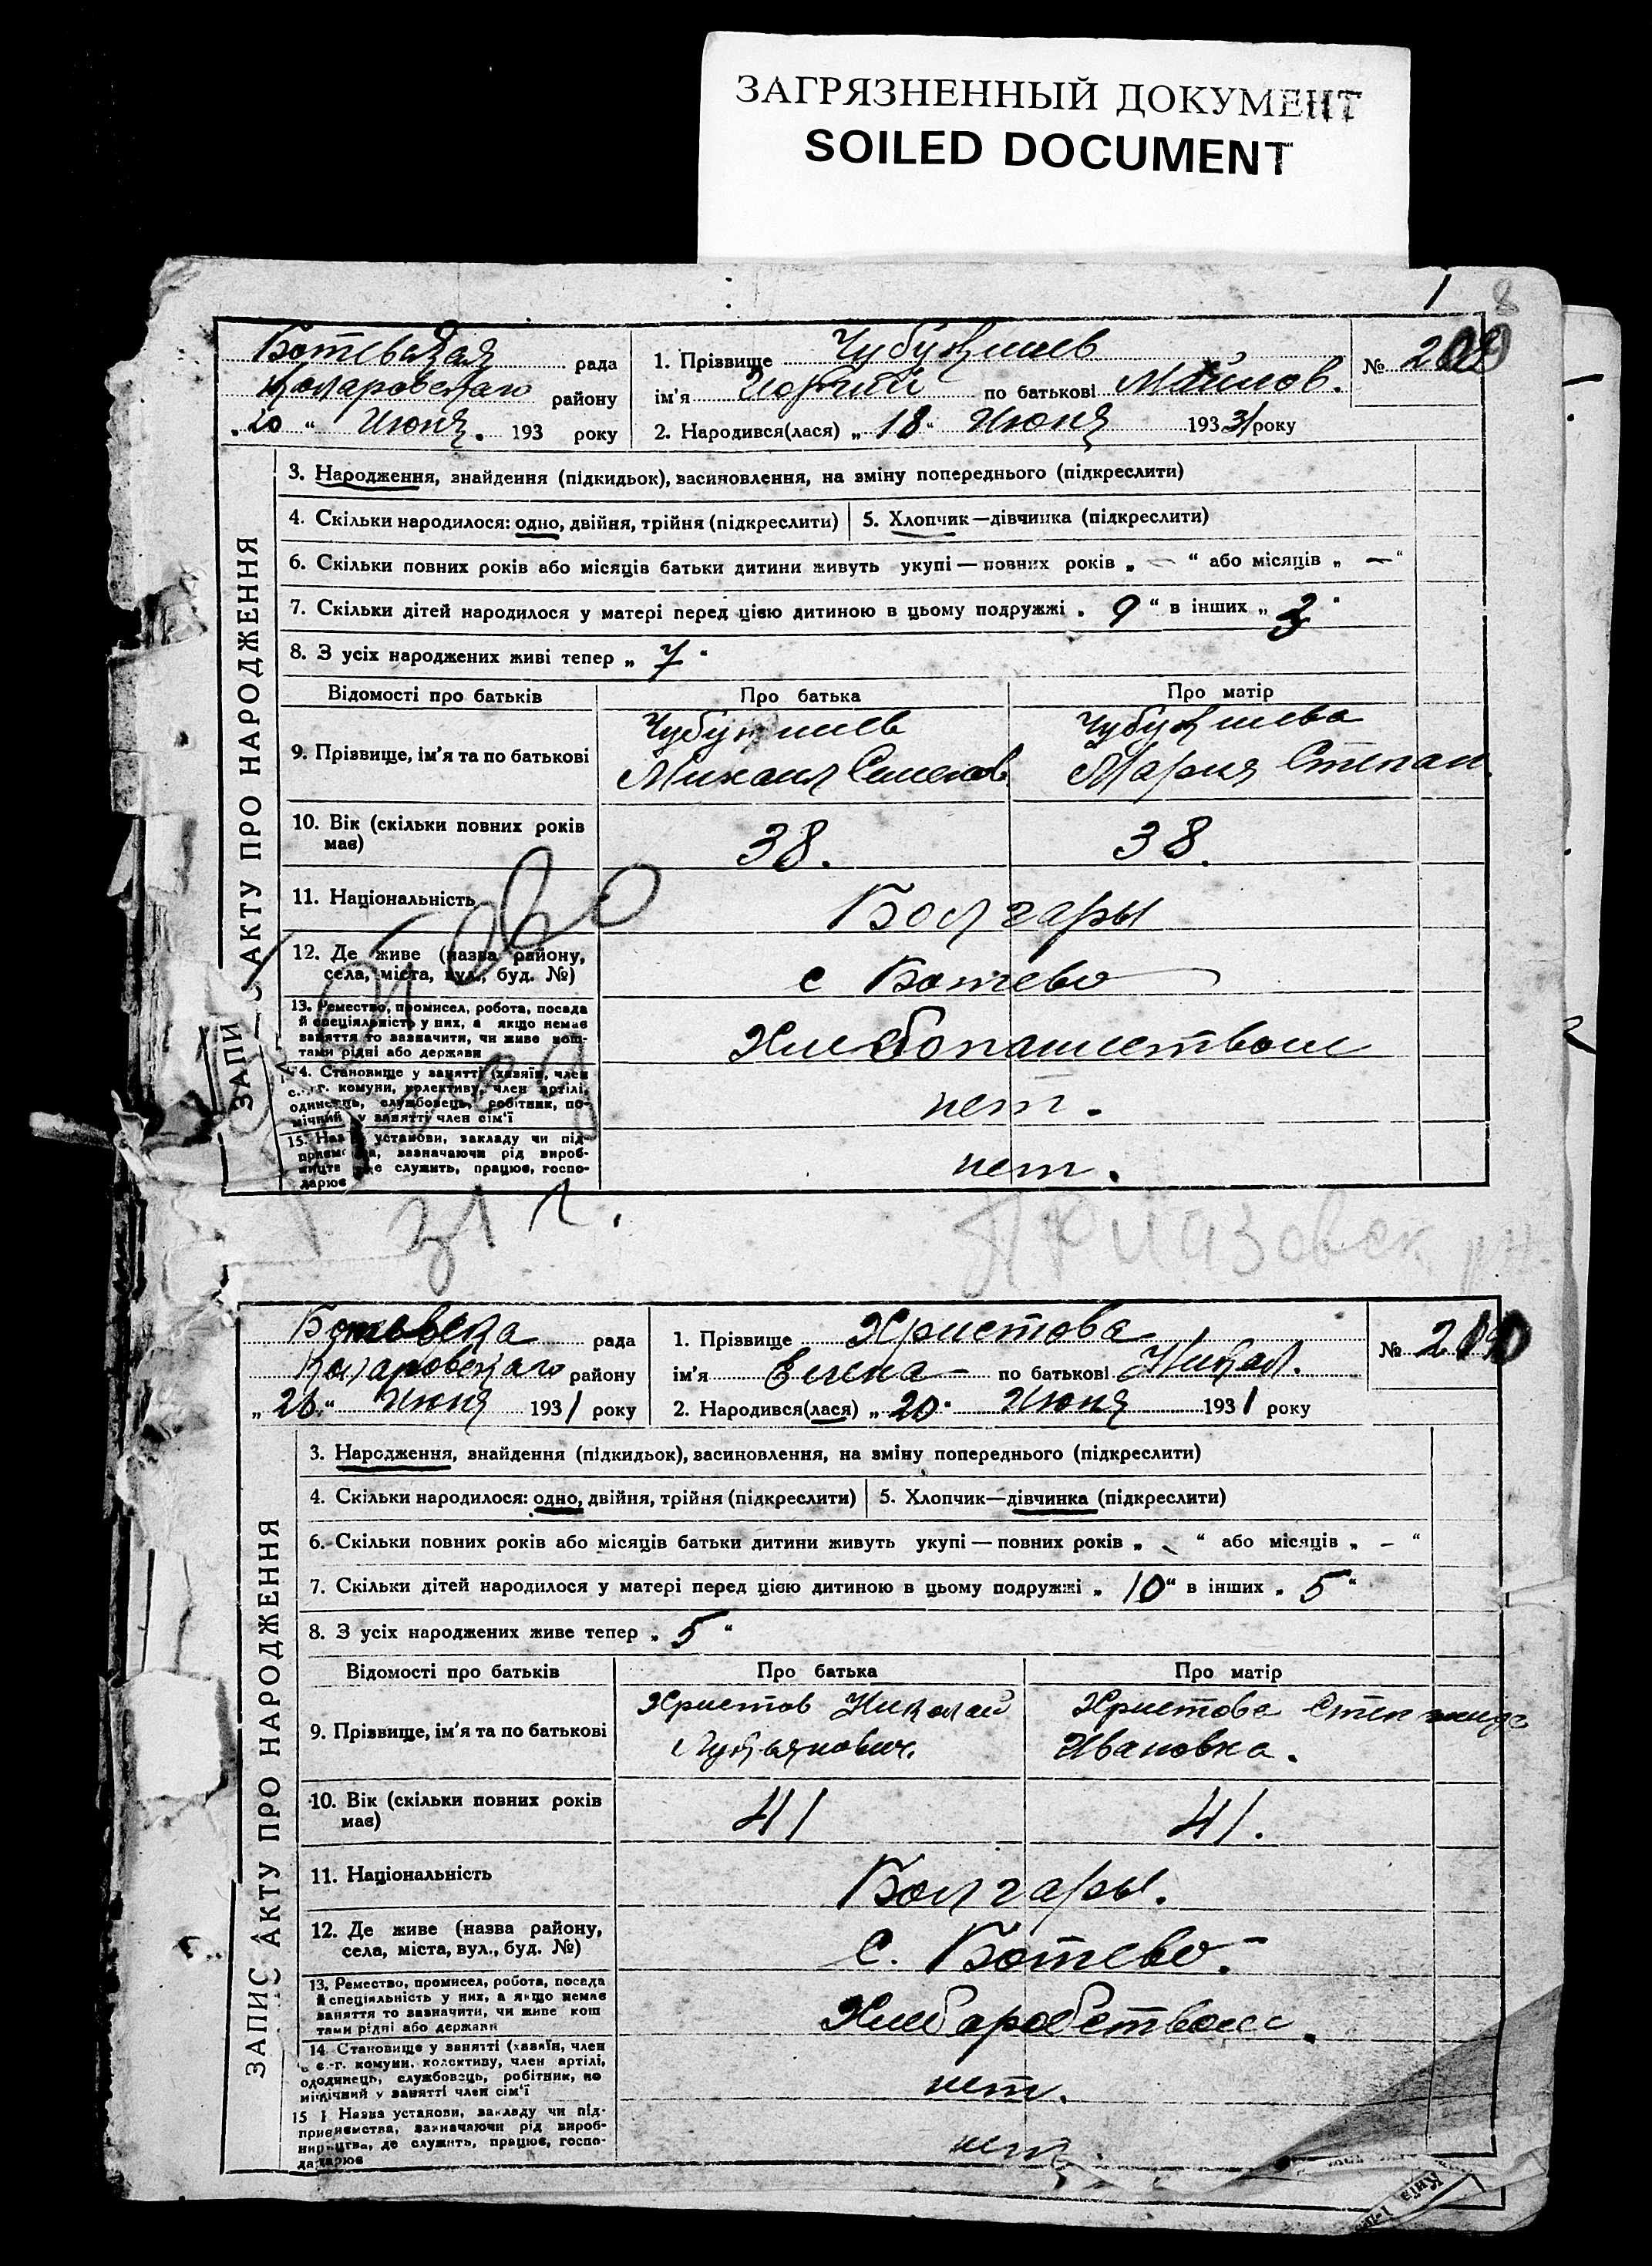 ЗАГРЯЗНЕННЫЙ ДОКУМЕНТ
SOILED DOCUMENT
1 8
Ботевская рада
Коларовского району
„20“ Июня. 193 року
1. Прізвище
ім'я по батькові
2. Народився(лася) „18“ Июня 1931 року
№
ЗАПИС АКТУ ПРО НАРОДЖЕННЯ
3. Народження, знайдення (підкидьок), засиновлення, на зміну попереднього (підкреслити)
4. Скільки народилося: одно, двійня, трійня (підкреслити)
5. Хлопчик—дівчинка (підкреслити)
6. Скільки повних років або місяців батьки дитини живуть укупі — повних років „ — “ або місяців „ — “
7. Скільки дітей народилося у матері перед цією дитиною в цьому подружжі „ 9 “ в інших „ 3 “
8. З усіх народжених живі тепер „ 7 “
Відомості про батьків Про батька Про матір
9. Прізвище, ім'я та по батькові
Михаил Семенов. Мария Степан.
10. Вік (скільки повних років має) 38. 38.
11. Національність Болгары
12. Де живе (назва району, села, міста, вул., буд. №) с Ботево
13. Ремество, промисел, робота, посада
й спеціяльність у них, а якщо немає
заняття то зазначити, чи живе кош-
тами рідні або держави
Хлебопашеством
14. Становище у занятті (хазяїн, член
с.-г. комуни, колективу, член артілі,
одинець, службовець, робітник, по-
мічний у занятті член сім'ї
нет.
15. Назва установи, закладу чи під-
приємства, зазначаючи рід вироб-
ництва, де служить, працює, госпо-
дарює
нет.
31 г.
Приазовск р-н.
Ботевска рада
Коларовского району
„20“ Июня 1931 року
1. Прізвище Христова
ім'я Елена по батькові Никол.
2. Народився(лася) „20“ Июня 1931 року
№
ЗАПИС АКТУ ПРО НАРОДЖЕННЯ
3. Народження, знайдення (підкидьок), засиновлення, на зміну попереднього (підкреслити)
4. Скільки народилося: одно, двійня, трійня (підкреслити)
5. Хлопчик—дівчинка (підкреслити)
6. Скільки повних років або місяців батьки дитини живуть укупі — повних років „ - “ або місяців „ – “
7. Скільки дітей народилося у матері перед цією дитиною в цьому подружжі „ 10 “ в інших „ 5 “
8. З усіх народжених живе тепер „ 5 “
Відомості про батьків Про батька Про матір
9. Прізвище, ім'я та по батькові
Христов Николай
Лукьянович.
Христова
Ивановна.
10. Вік (скільки повних років має) 41 41.
11. Національність Болгары.
12. Де живе (назва району, села, міста, вул., буд. №) С. Ботево.
13. Ремество, промисел, робота, посада
й спеціяльність у них, а якщо немає
заняття то зазначити, чи живе кош
тами рідні або держави
Хлеборобством.
14 Становище у занятті (хазяїн, член
с.-г. комуни, колективу, член артілі,
одинець, службовець, робітник, по
мічний у занятті член сім'ї
нет.
15 Назва установи, закладу чи під-
приємства, зазначаючи рід вироб-
ництва, де служить, працює, госпо-
дарює
нет.